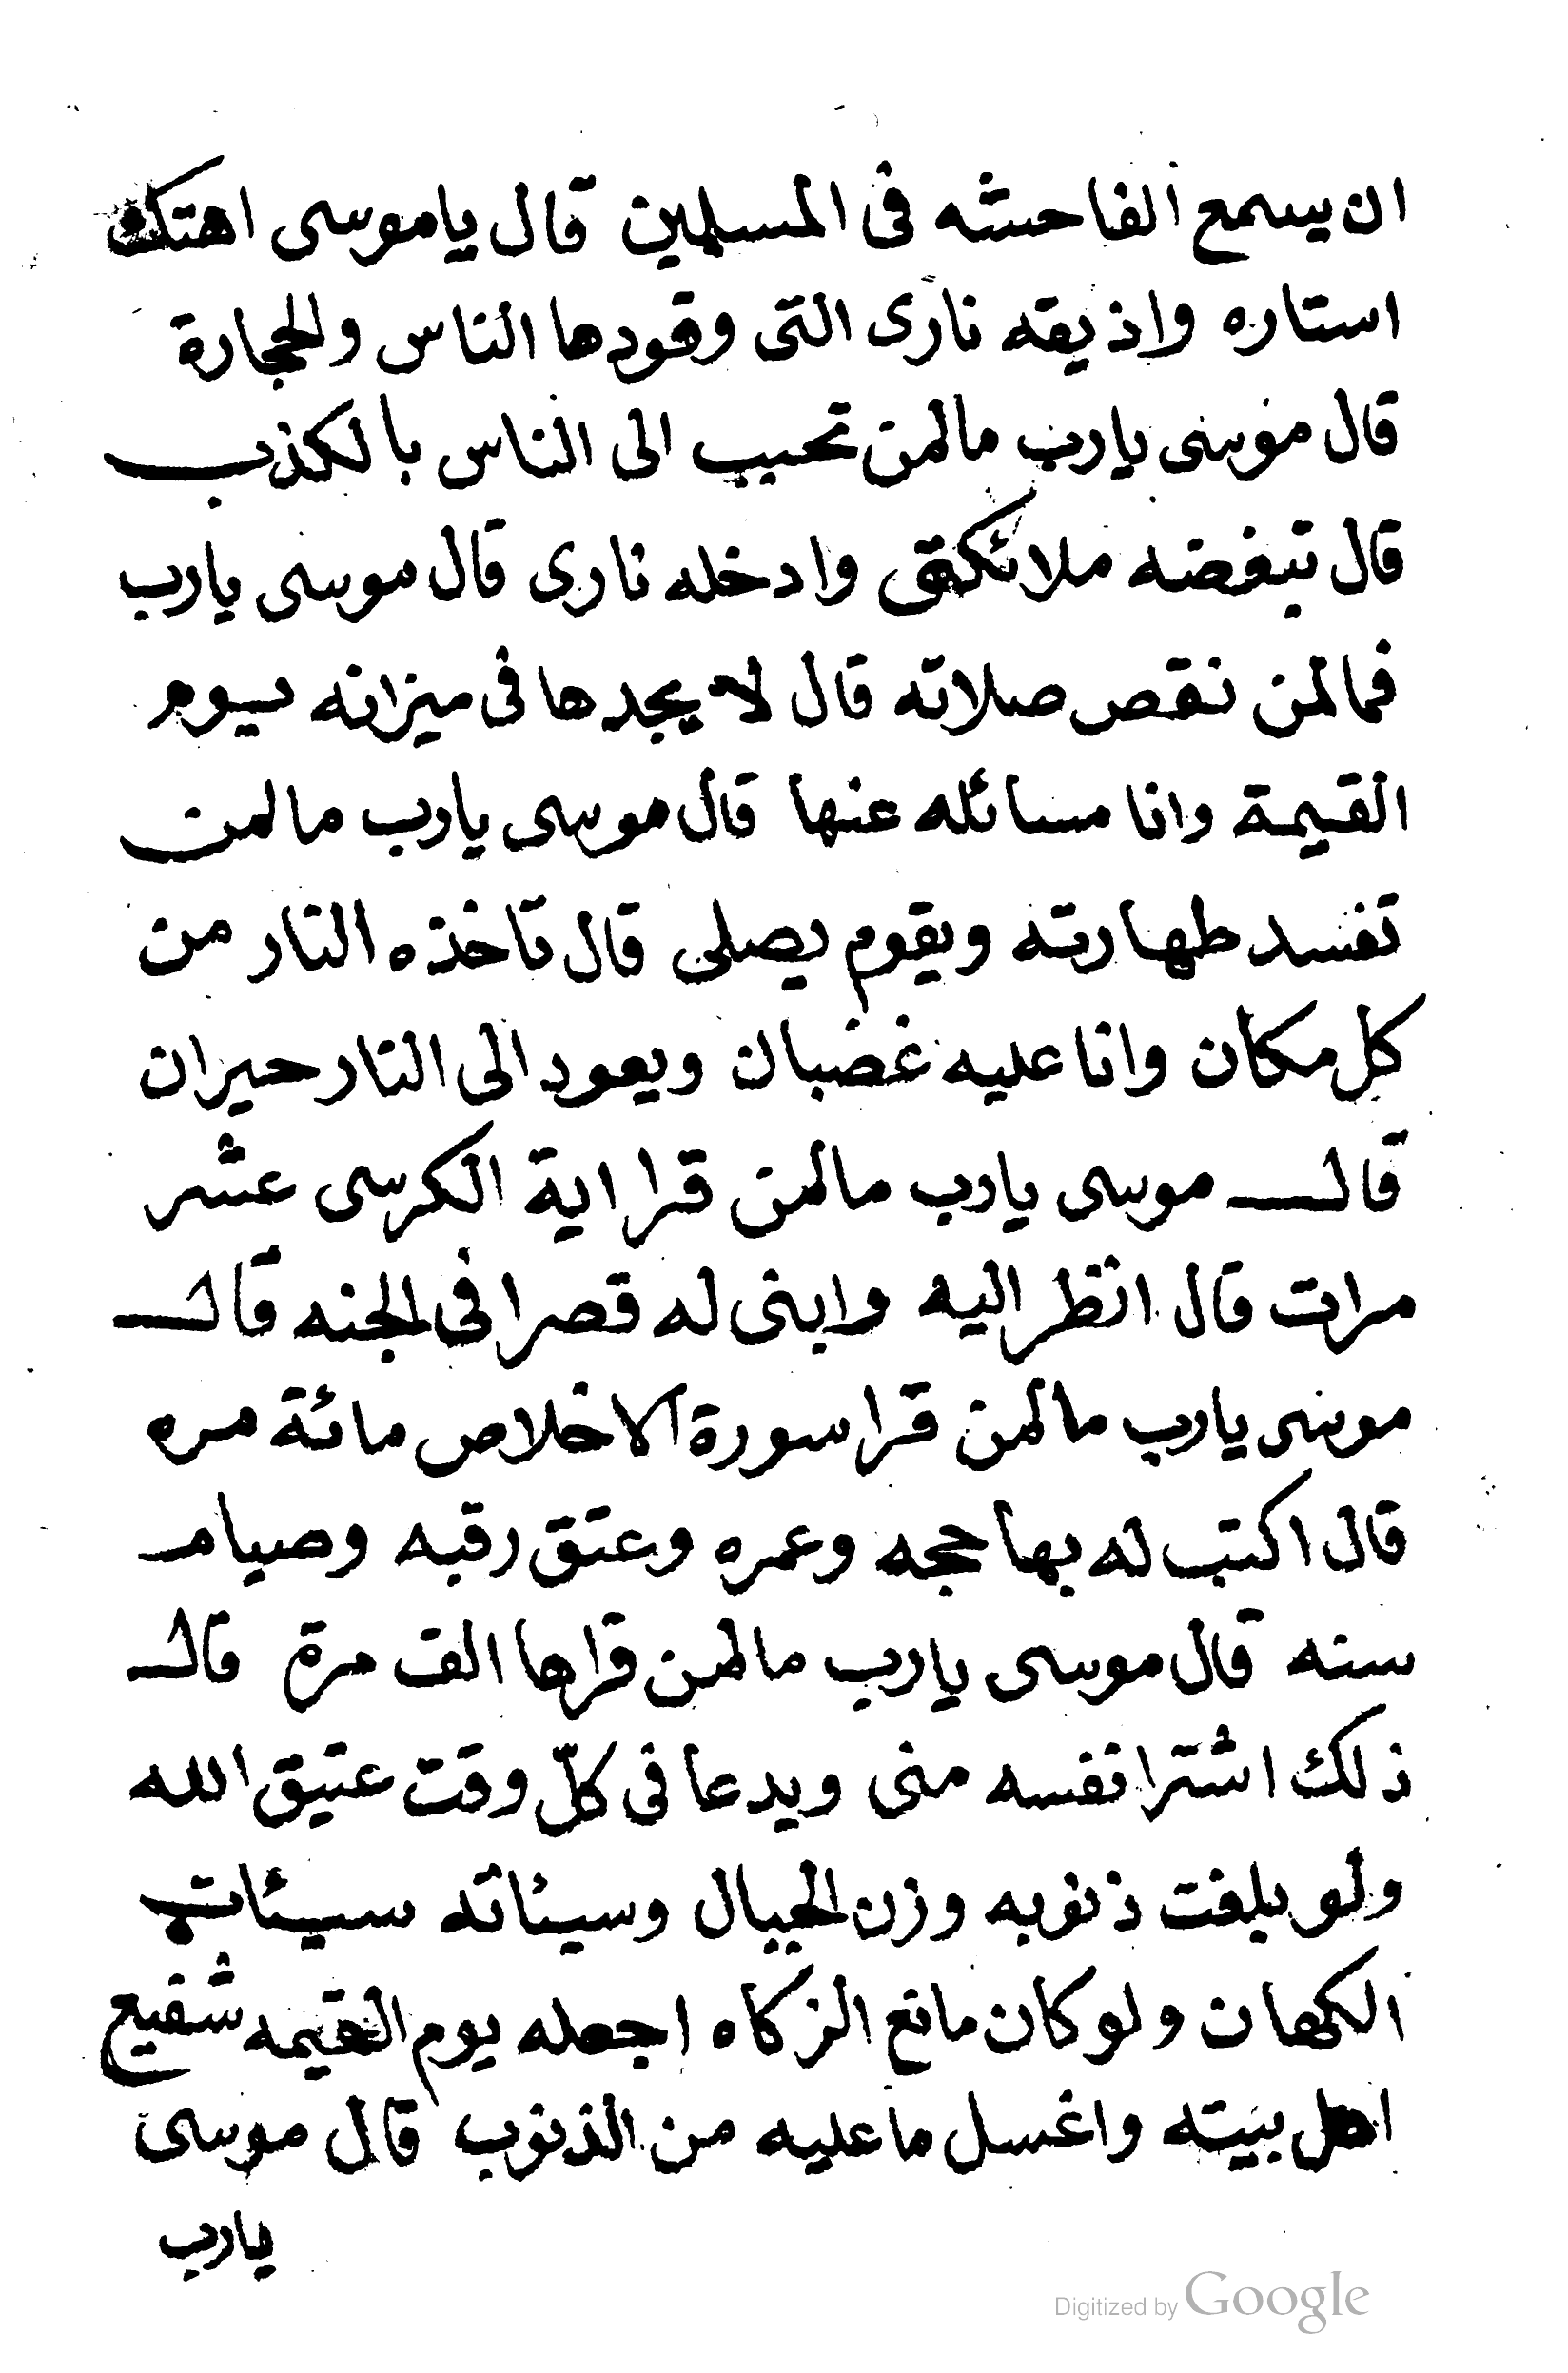 ان يسمع الفاحشه فى المسلمين قال ياموسى اهتك
استاره واذيقه نارى التى وقودها الناس والحجارة
قال موسى يارب مالمن تحبب الى الناس بالكذب
قال تبغضه ملائكتى وادخله نارى قال موسى يارب
فمالمن نقص صلاته قال لا يجدها فى ميزانه يوم
القيمة وانا مسائله عنها قال موسى يارب مالمن
تفسد طهارته ويقوم يصلى قال تاخذه النار من
كل مكان وانا عليه غضبان ويعود الى النار حيران
قال موسى يارب مالمن قرا اية الكرسى عشر
مرات قال انظر اليه وابنى له قصرا فى الجنه قال
موسى يارب مالمن قرا سورة الاخلاص مائة مره
قال اكتب له بها حجه وعمره وعتق رقبه وصيام
سنه قال موسى يارب مالمن قراها الف مرة قال
ذلك اشترا نفسه منى ويدعا فى كلّ وقت عتيق الله
ولو بلغت ذنوبه وزن الجبال وسيئاته سيئات
الكهان ولو كان مانع الزكاه اجعله يوم القيمه شفيع
اهل بيته واغسل ما عليه من الذنوب قال موسى
يارب
Digitized by Google